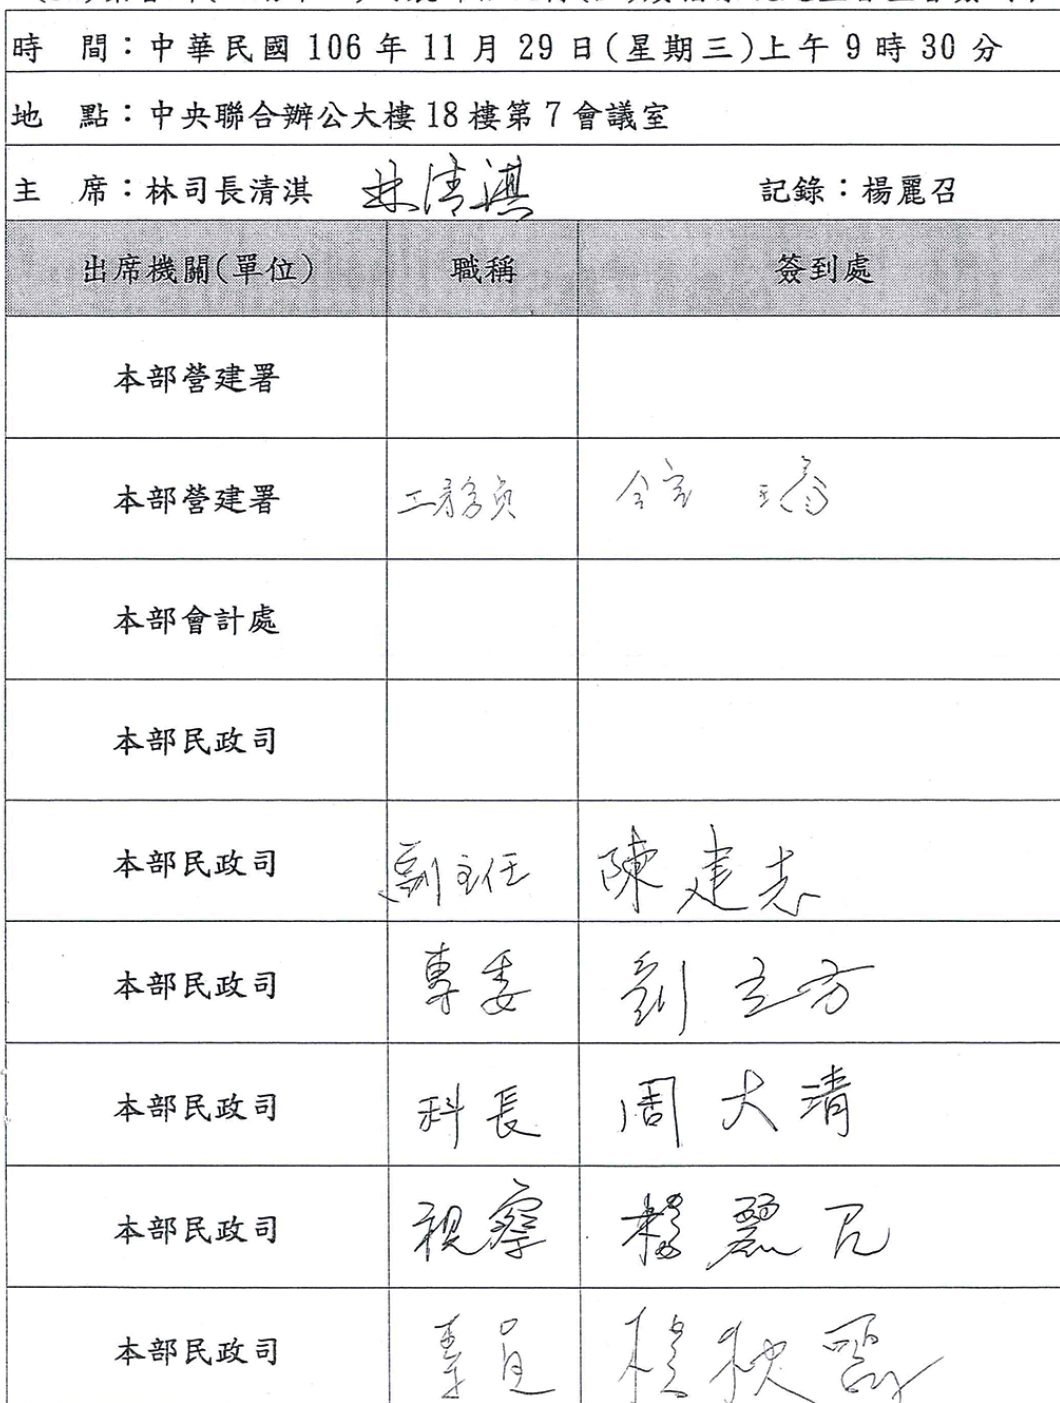 時 間：中華民國 106 年 11 月 29 日(星期三)上午 9 時 30 分
地 點：中央聯合辦公大樓 18 樓第 7 會議室
主 席：林司長清淇 林清淇 記錄：楊麗召
出席機關(單位) 職稱 簽到處
本部營建署
本部營建署 工務員
本部會計處
本部民政司
本部民政司 副主任 陳建志
本部民政司 專委 劉立方
本部民政司 科長 周大清
本部民政司 視察 楊麗召
本部民政司 專員